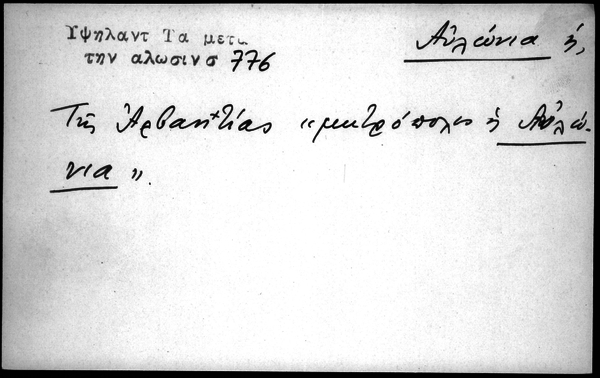 Υψηλαντ Τα μετα Αὐλώνια ἡ,
την αλωσιν σ 776
Τῆς Ἀρβανιτίας "μητρόπολις ἡ Αὐλώ-
νια".